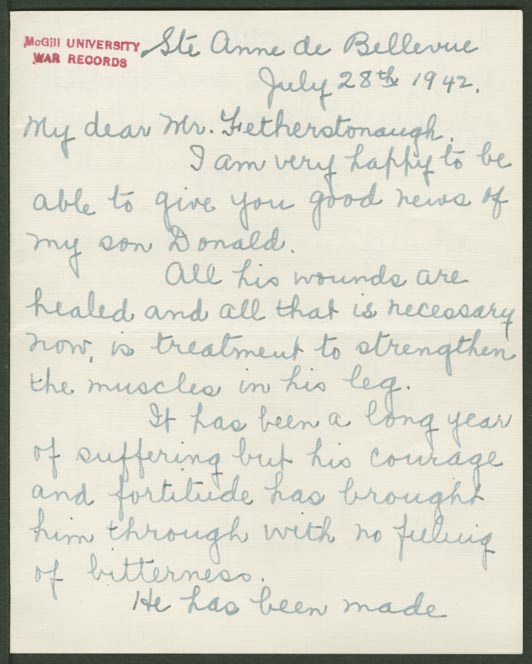 McGill UNIVERSITY
WAR RECORDS
Ste Anne de Bellevue
July 28th 1942.
My dear Mr. Fetherstonaugh.
I am very happy to be
able to give you good news of
my son Donald.
All his wounds are
healed and all that is necessary
now, is treatment to strengthen
the muscles in his leg.
It has been a long year
of suffering but his courage
and fortitude has brought
him through with no feeling
of bitterness.
He has been made